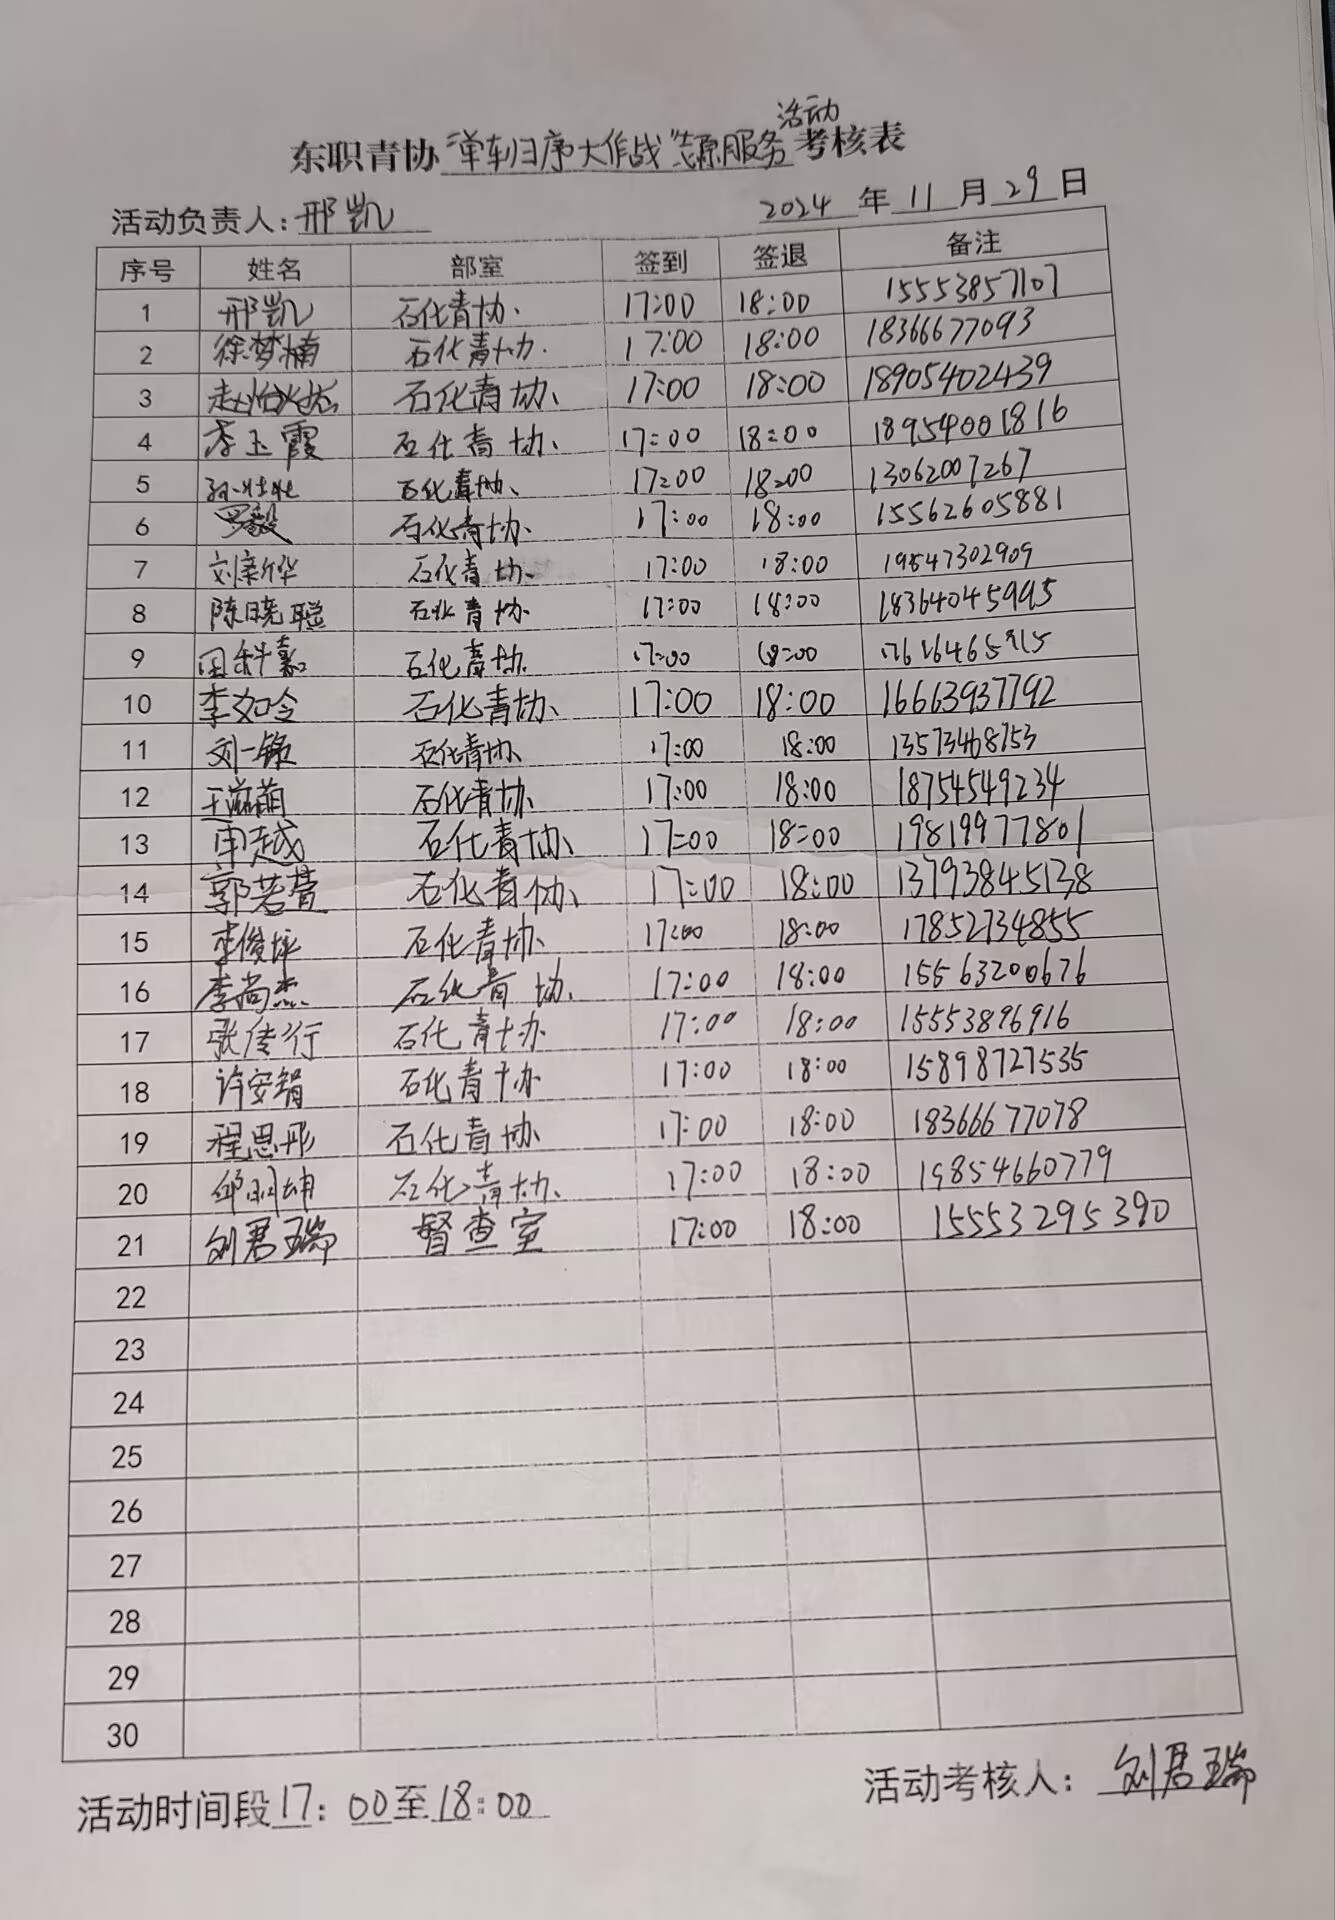 活动
东职青协“单车归序大作战”志愿服务考核表
活动负责人:邢凯 2024年11月29日
序号 姓名 部室 签到 签退 备注
1 邢凯 石化青协 17:00 18:00 15553857107
2 徐梦楠 石化青协 17:00 18:00 18366677093
3 石化青协 17:00 18:00 18905402439
4 李玉霞 石化青协 17:00 18:00 18954001816
5 石化青协 17:00 18:00 13062007267
6 罗毅 石化青协 17:00 18:00 15562605881
7 石化青协 17:00 18:00 19547302909
8 陈晓聪 石化青协 17:00 18:00 18364045995
9 田科嘉 石化青协 17:00 18:00
10 李如令 石化青协 17:00 18:00 16663937792
11 石化青协 17:00 18:00 13573468753
12 王滋萌 石化青协 17:00 18:00 18754549234
13 申越 石化青协 17:00 18:00 19819977801
14 郭若萱 石化青协 17:00 18:00 13793845138
15 李俊坪 石化青协 17:00 18:00 17852734855
16 李尚杰 石化青协 17:00 18:00 15563200676
17 张传行 石化青协 17:00 18:00 15553896916
18 许安娟 石化青协 17:00 18:00 15898727535
19 程思彤 石化青协 17:00 18:00 18366677078
20 石化青协 17:00 18:00 19854660779
21 刘君瑞 督查室 17:00 18:00 15553295390
22
23
24
25
26
27
28
29
30
活动时间段17:00至18:00 活动考核人:刘君瑞